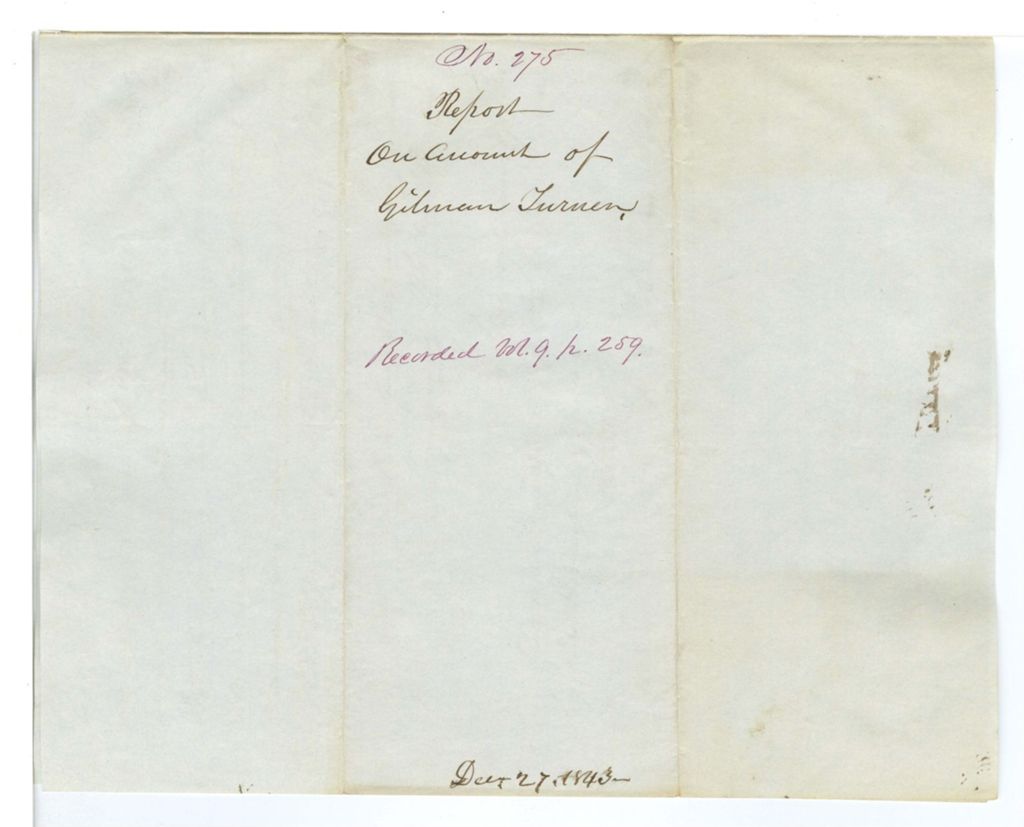 No. 275
Report
On Account of
Gilman Turner,
Recorded Vol. 9. p. 259.
Decr 27. 1843